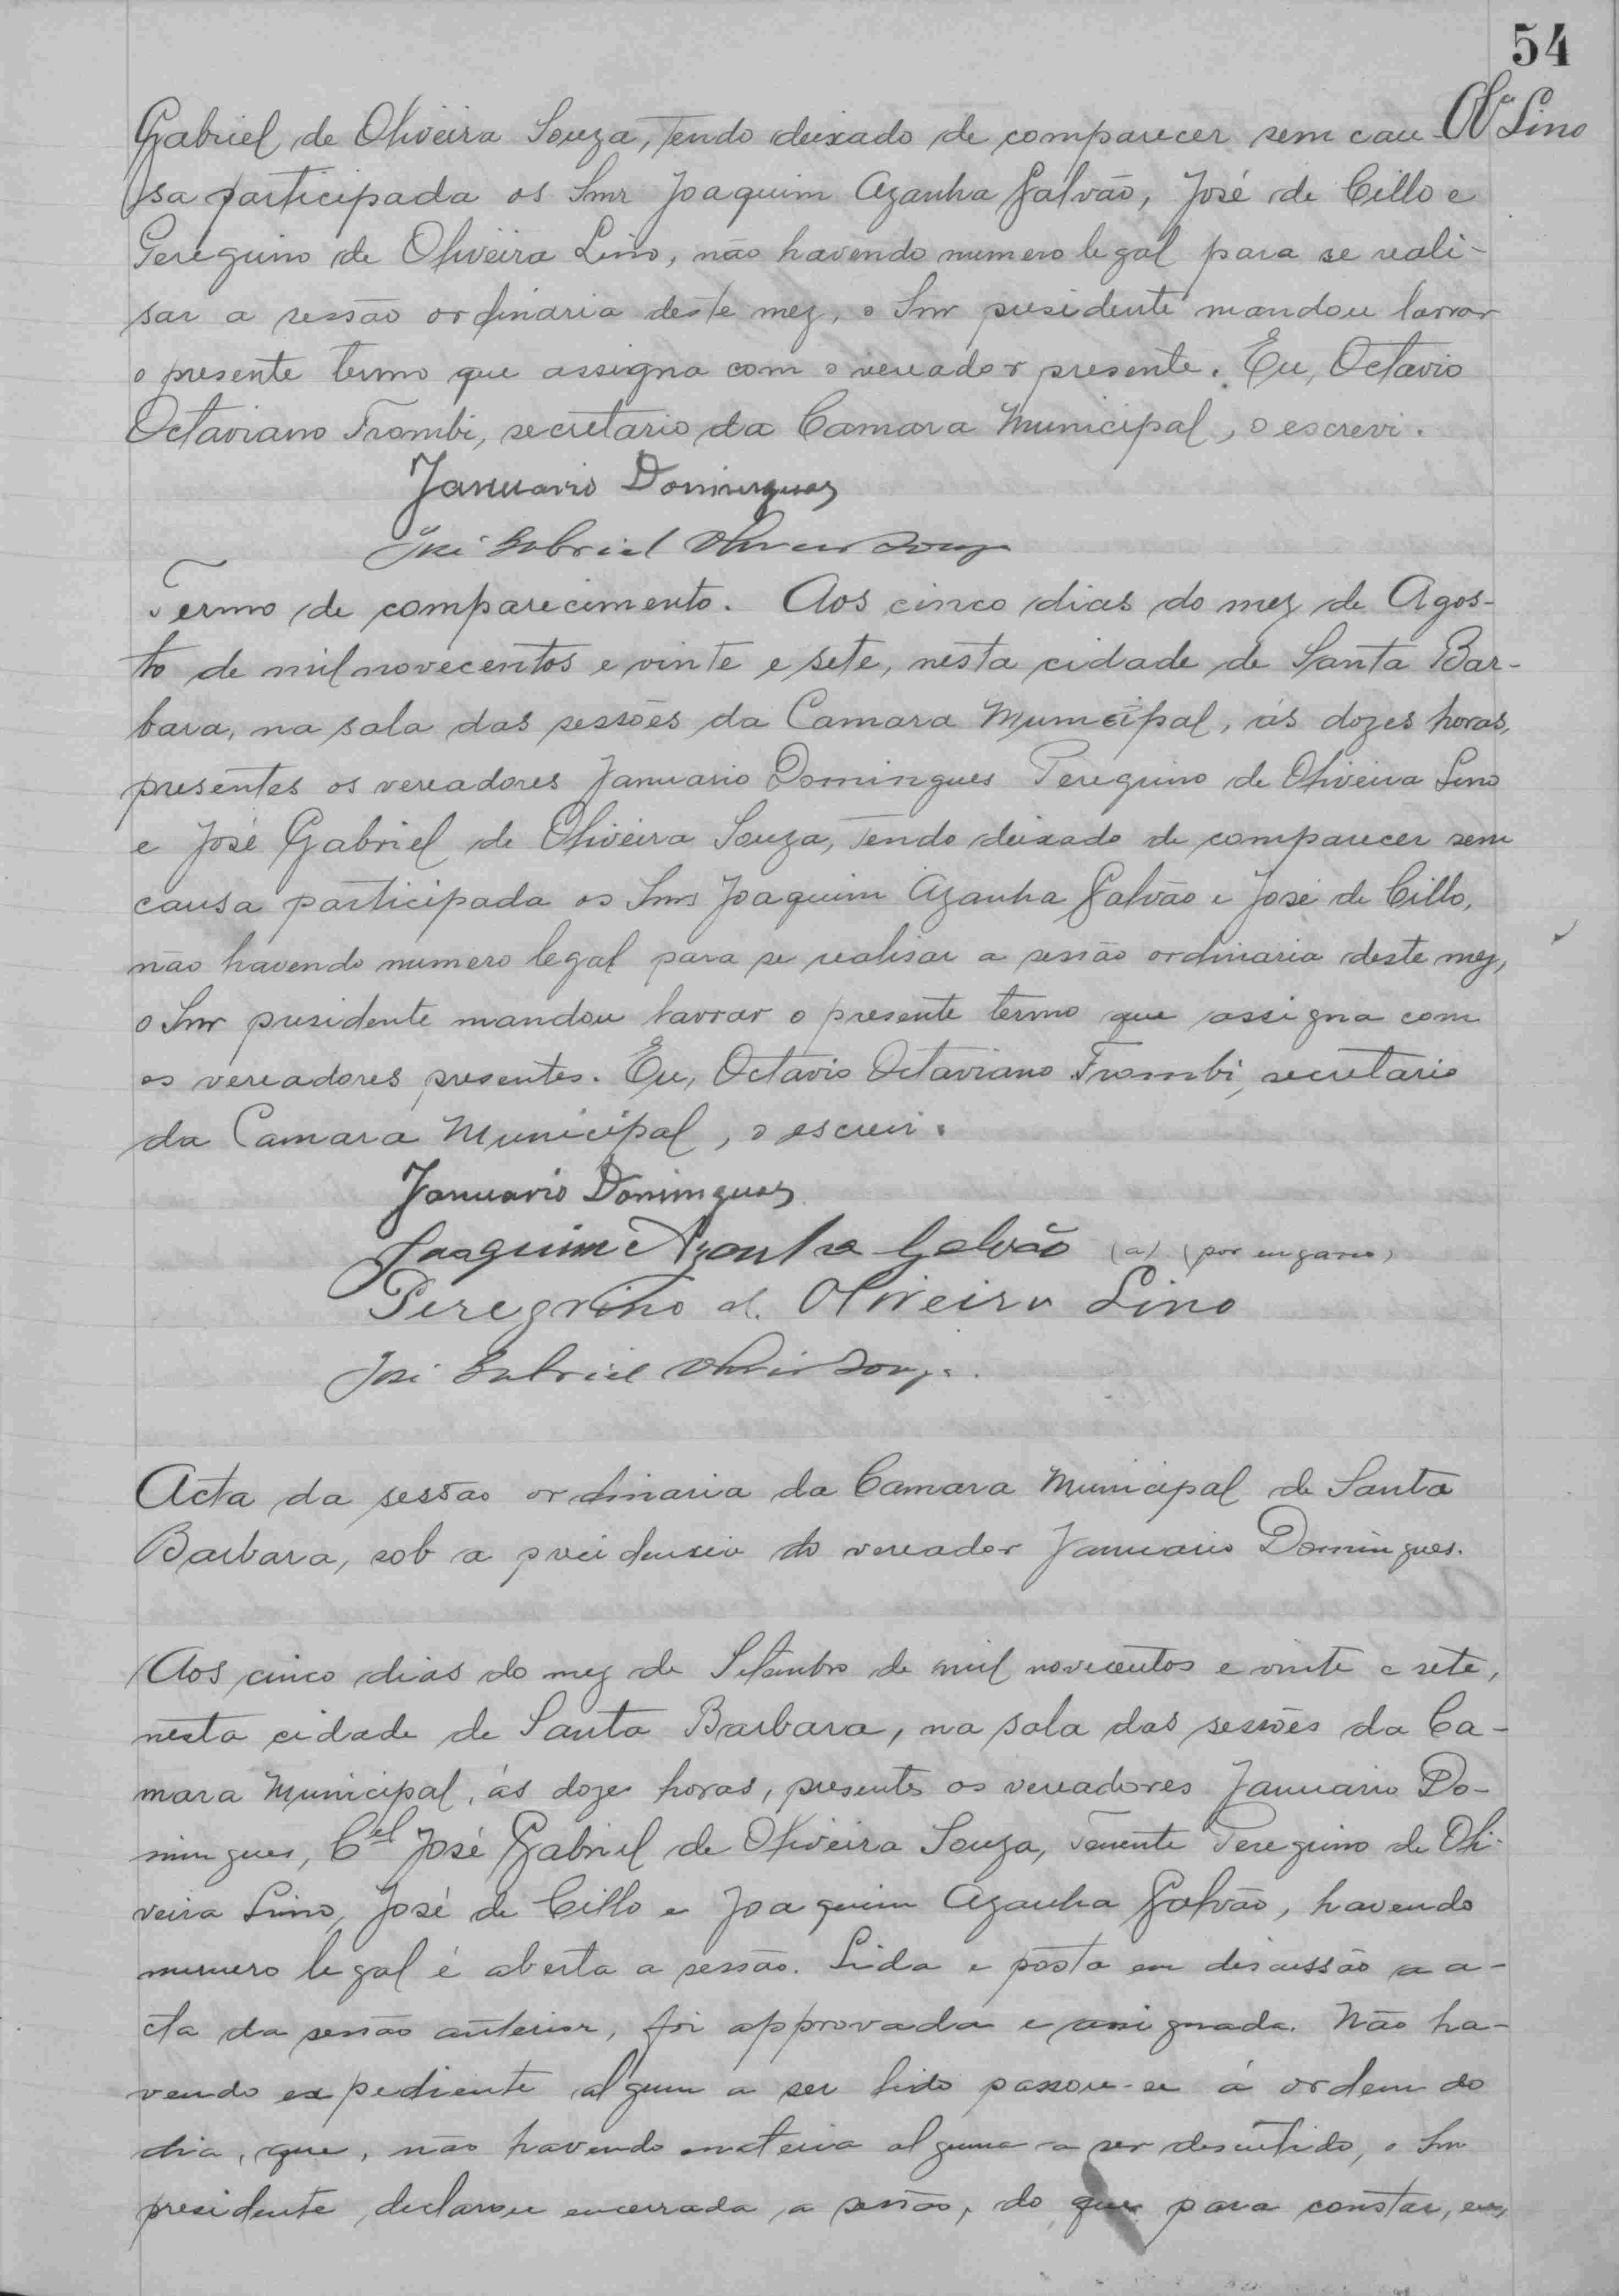 54
Ol.ra Lino
Gabriel de Oliveira Souza, tendo deixado de comparecer sem cau-
sa participada os Snrs Joaquim Azanha Galvão, José de Cillo e
Pereguino de Oliveira Lino, não havendo numero legal para se reali-
sar a sessão ordinaria deste mez, o Snr presidente mandou lavrar
o presente termo que assigna com o vereador presente. Eu, Octavio
Octaviano Trombi, secretario da Camara Municipal, o escrevi.
Januario Domingues
José Gabriel Oliveira Souza
Termo de comparecimento. Aos cinco dias do mez de Agos-
to de mil novecentos e vinte e sete, nesta cidade de Santa Bar-
bara, na sala das sessões da Camara Municipal, ás dozes horas,
presentes os vereadores Januario Domingues Pereguino de Oliveira Lino
e José Gabriel de Oliveira Souza, tendo deixado de comparecer sem
causa participada os Snrs Joaquim Azanha Galvão e José de Cillo,
não havendo numero legal para se realisar a sessão ordinaria deste mez,
o Snr presidente mandou lavrar o presente termo que assigna com
os vereadores presentes. Eu, Octavio Octaviano Trombi, secretario
da Camara Municipal, o escrevi.
Januario Domingues
Joaquim Azanha Galvão (a) (por engano)
Peregrino d. Oliveira Lino
José Gabriel Oliveira Souza
Acta da sessão ordinaria da Camara Municipal de Santa
Barbara, sob a presidencia do vereador Januario Domingues.
Aos cinco dias do mez de Setembro de mil novecentos e vinte e sete,
nesta cidade de Santa Barbara, na sala das sessões da Ca-
mara Municipal, ás doze horas, presentes os vereadores Januario Do-
mingues, Cel José Gabriel de Oliveira Souza, Tenente Pereguino de Oli-
veira Lino, José de Cillo e Joaquim Azanha Galvão, havendo
numero legal é aberta a sessão. Lida e posta em discussão a a-
cta da sessão anterior, foi approvada e assignada. Não ha-
vendo expediente algum a ser lido passou-se á ordem do
dia, que, não havendo materia alguma a ser discutido, o Snr
presidente, declarou encerrada a sessão, do que para constar, eu,